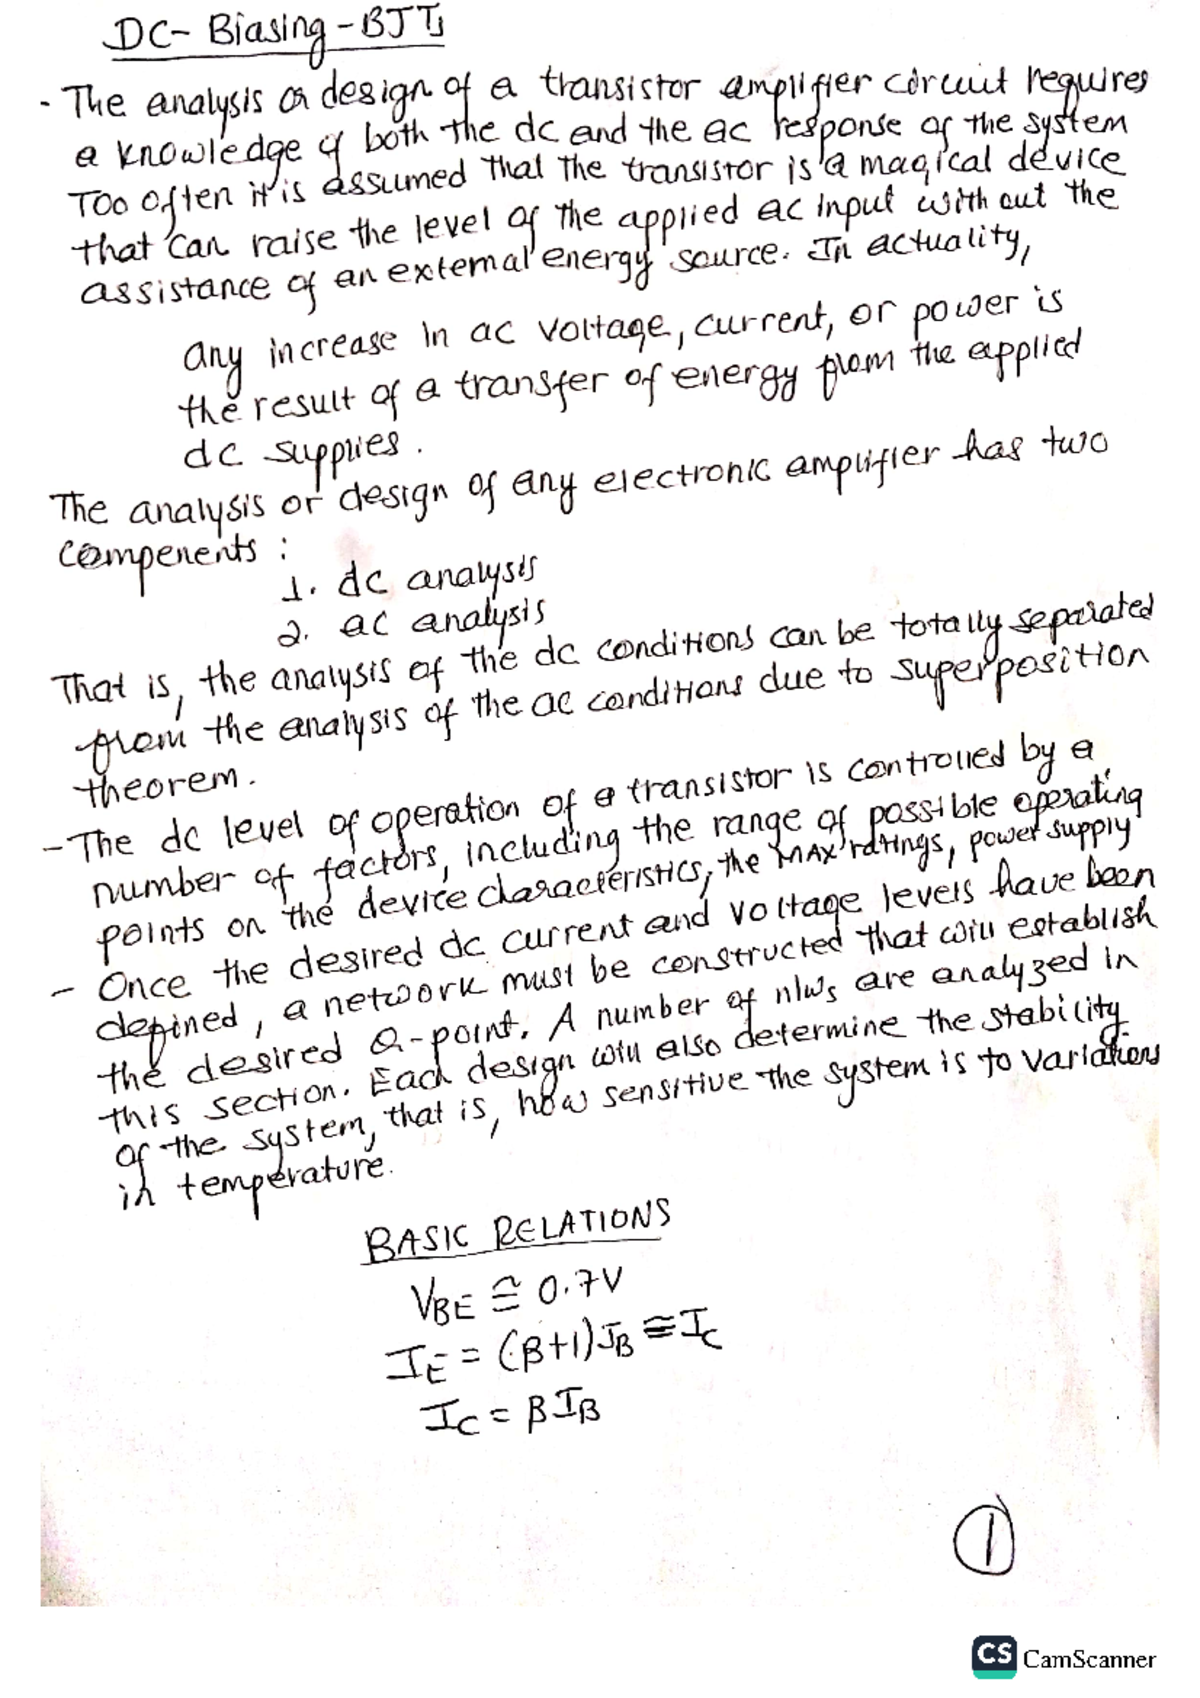 DC- Biasing - BJTs
- The analysis or design of a transistor amplifier circuit requires
a knowledge of both the dc and the ac response of the system
Too often it is assumed that the transistor is a magical device
that can raise the level of the applied ac input with out the
assistance of an external energy source. In actuality,
any increase in ac voltage, current, or power is
the result of a transfer of energy from the applied
dc supplies.
The analysis or design of any electronic amplifier has two
components :
1. dc analysis
2. ac analysis
That is, the analysis of the dc conditions can be totally separated
from the analysis of the ac conditions due to superposition
theorem.
- The dc level of operation of a transistor is controlled by a
number of factors, including the range of possible operating
points on the device characteristics, the MAX ratings, power supply
- Once the desired dc current and voltage levels have been
defined, a network must be constructed that will establish
the desired Q-point. A number of n/ws are analyzed in
this section. Each design will also determine the stability
of the system, that is, how sensitive the system is to variations
in temperature.
BASIC RELATIONS
VBE ≅ 0.7V
IE = (β+1)IB ≅ IC
IC = βIB
1
CS CamScanner